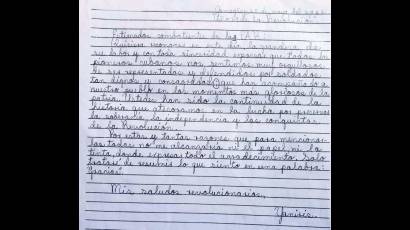 Estimados combatiente de las FAR:
Quisiera reconocer en este día, la grandeza de
su labor y con toda sinceridad expresar que todos los
pioneros cubanos nos sentimos muy orgullosos
de ser representados y defendidos por soldados
tan dignos y consagrados que han acompañado a
nuestro pueblo en los momentos más gloriosos de la
patria. Ustedes han sido la continuidad de la
historia que atesoramos en la lucha por preservar
la soberanía, la independencia y las conquistas
de la Revolución.
Por estas y tantas razones que para mencionar
las todas no me alcanzaría ni el papel ni la
tinta, donde expresar todo el agradecimiento. Solo
trataré de resumir lo que siento en una palabra:
Gracias
Mis saludos revolucionarios,